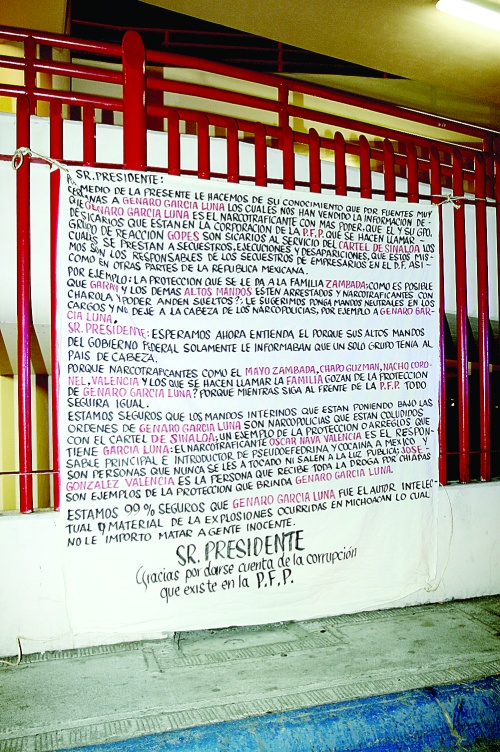 SR. PRESIDENTE:
POR MEDIO DE LA PRESENTE LE HACEMOS DE SU CONOCIMIENTO QUE POR FUENTES MUY
CERCANAS A GENARO GARCIA LUNA LOS CUALES NOS HAN VENDIDO LA INFORMACION DE
QUE GENARO GARCIA LUNA ES EL NARCOTRAFICANTE CON MAS PODER, QUE EL Y SU GPO.
DE SICARIOS QUE ESTAN EN LA CORPORACION DE LA P.F.P. QUE SE HACEN LLAMAR
GRUPO DE REACCION GOPES SON SICARIOS AL SERVICIO DEL CARTEL DE SINALOA LOS
CUALES SE PRESTAN A SECUESTROS, EJECUCIONES Y DESAPARICIONES, QUE ESTOS MIS-
MOS SON LOS RESPONSABLES DE LOS SECUESTROS DE EMPRESARIOS EN EL D.F. ASI
COMO EN OTRAS PARTES DE LA REPUBLICA MEXICANA.
POR EJEMPLO: LA PROTECCION QUE SE LE DA A LA FAMILIA ZAMBADA; COMO ES POSIBLE
QUE GARAY Y LOS DEMAS ALTOS MANDOS ESTEN ARRESTADOS Y NARCOTRAFICANTES CON
CHAROLA Y PODER ANDEN SUELTOS?; LE SUGERIMOS PONGA MANDOS NEUTRALES EN LOS
CARGOS Y NO DEJE A LA CABEZA DE LOS NARCOPOLICIAS, POR EJEMPLO A GENARO GAR-
CIA LUNA.
SR. PRESIDENTE: ESPERAMOS AHORA ENTIENDA EL PORQUE SUS ALTOS MANDOS
DEL GOBIERNO FEDERAL SOLAMENTE LE INFORMABAN QUE UN SOLO GRUPO TENIA AL
PAIS DE CABEZA.
PORQUE NARCOTRAFICANTES COMO EL MAYO ZAMBADA, CHAPO GUZMAN, NACHO CORO-
NEL, VALENCIA Y LOS QUE SE HACEN LLAMAR LA FAMILIA GOZAN DE LA PROTECCION
DE GENARO GARCIA LUNA? PORQUE MIENTRAS SIGA AL FRENTE DE LA P.F.P. TODO
SEGUIRA IGUAL.
ESTAMOS SEGUROS QUE LOS MANDOS INTERINOS QUE ESTAN PONIENDO BAJO LAS
ORDENES DE GENARO GARCIA LUNA SON NARCOPOLICIAS QUE ESTAN COLUDIDOS
CON EL CARTEL DE SINALOA; UN EJEMPLO DE LA PROTECCION O ARREGLOS QUE
TIENE GARCIA LUNA: EL NARCOTRAFICANTE OSCAR NAVA VALENCIA ES EL RESPON-
SABLE PRINCIPAL E INTRODUCTOR DE PSEUDOEFEDRINA Y COCAINA A MEXICO Y
SON PERSONAS QUE NUNCA SE LES A TOCADO NI SALEN A LA LUZ PUBLICA; JOSE
GONZALEZ VALENCIA ES LA PERSONA QUE RECIBE TODA LA DROGA POR CHIAPAS
SON EJEMPLOS DE LA PROTECCION QUE BRINDA GENARO GARCIA LUNA.
ESTAMOS 99% SEGUROS QUE GENARO GARCIA LUNA FUE EL AUTOR INTELEC
TUAL Y MATERIAL DE LA EXPLOSIONES OCURRIDAS EN MICHOACAN LO CUAL
NO LE IMPORTO MATAR A GENTE INOCENTE.
SR. PRESIDENTE
Gracias por darse cuenta de la corrupción
que existe en la P.F.P.